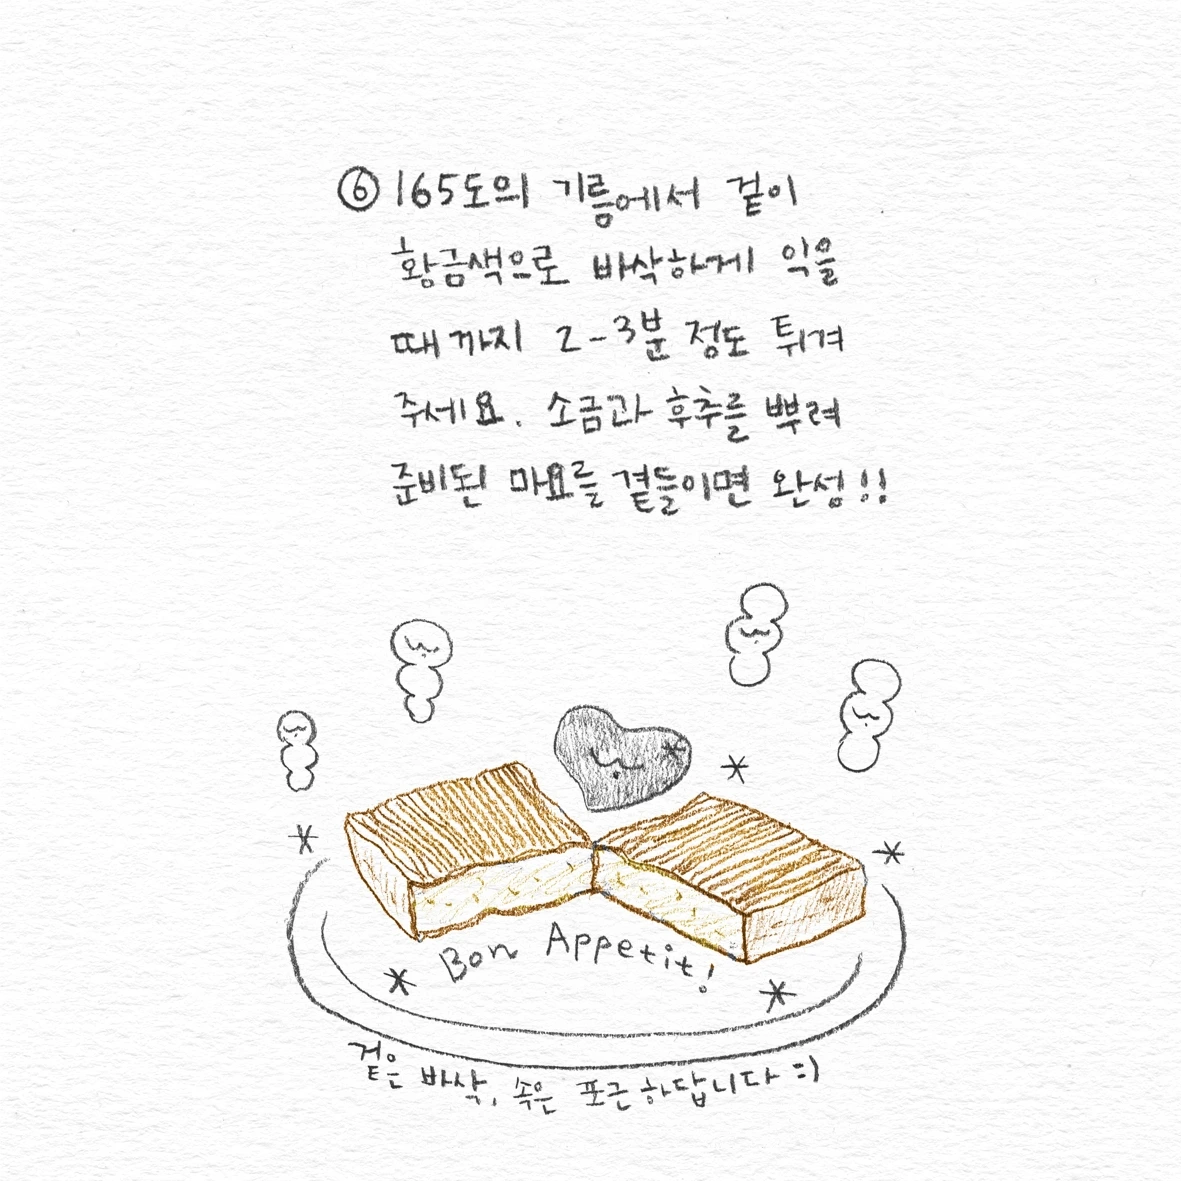 ⑥ 165도의 기름에서 겉이
황금색으로 바삭하게 익을
때까지 2-3분 정도 튀겨
주세요. 소금과 후추를 뿌려
준비된 마요를 곁들이면 완성!!
Bon Appetit!
겉은 바삭, 속은 포근하답니다 :)